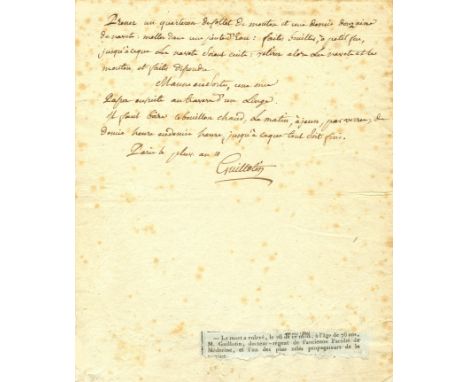 Prenez un quarteron de collet de mouton et une demie douzaine
de navets: mettez dans une pinte d'eau: faites bouillir à petit feu,
jusqu'à ce que les navets soient cuits: retirez alors les navets et le
mouton et faites
cela
Passez ensuite au travers d'un Linge.
Il faut boire ce bouillon chaud, le matin, à jeun, par verres, de
demie heure en demie heure, jusqu'à ce que tout soit fini.
Paris le an 11
Guillotin
— La mort a enlevé, le 26 de ce mois, à l'âge de 76 ans,
M. Guillotin, docteur-régent de l'ancienne Faculté de
Médecine, et l'un des plus zélés propagateurs de la